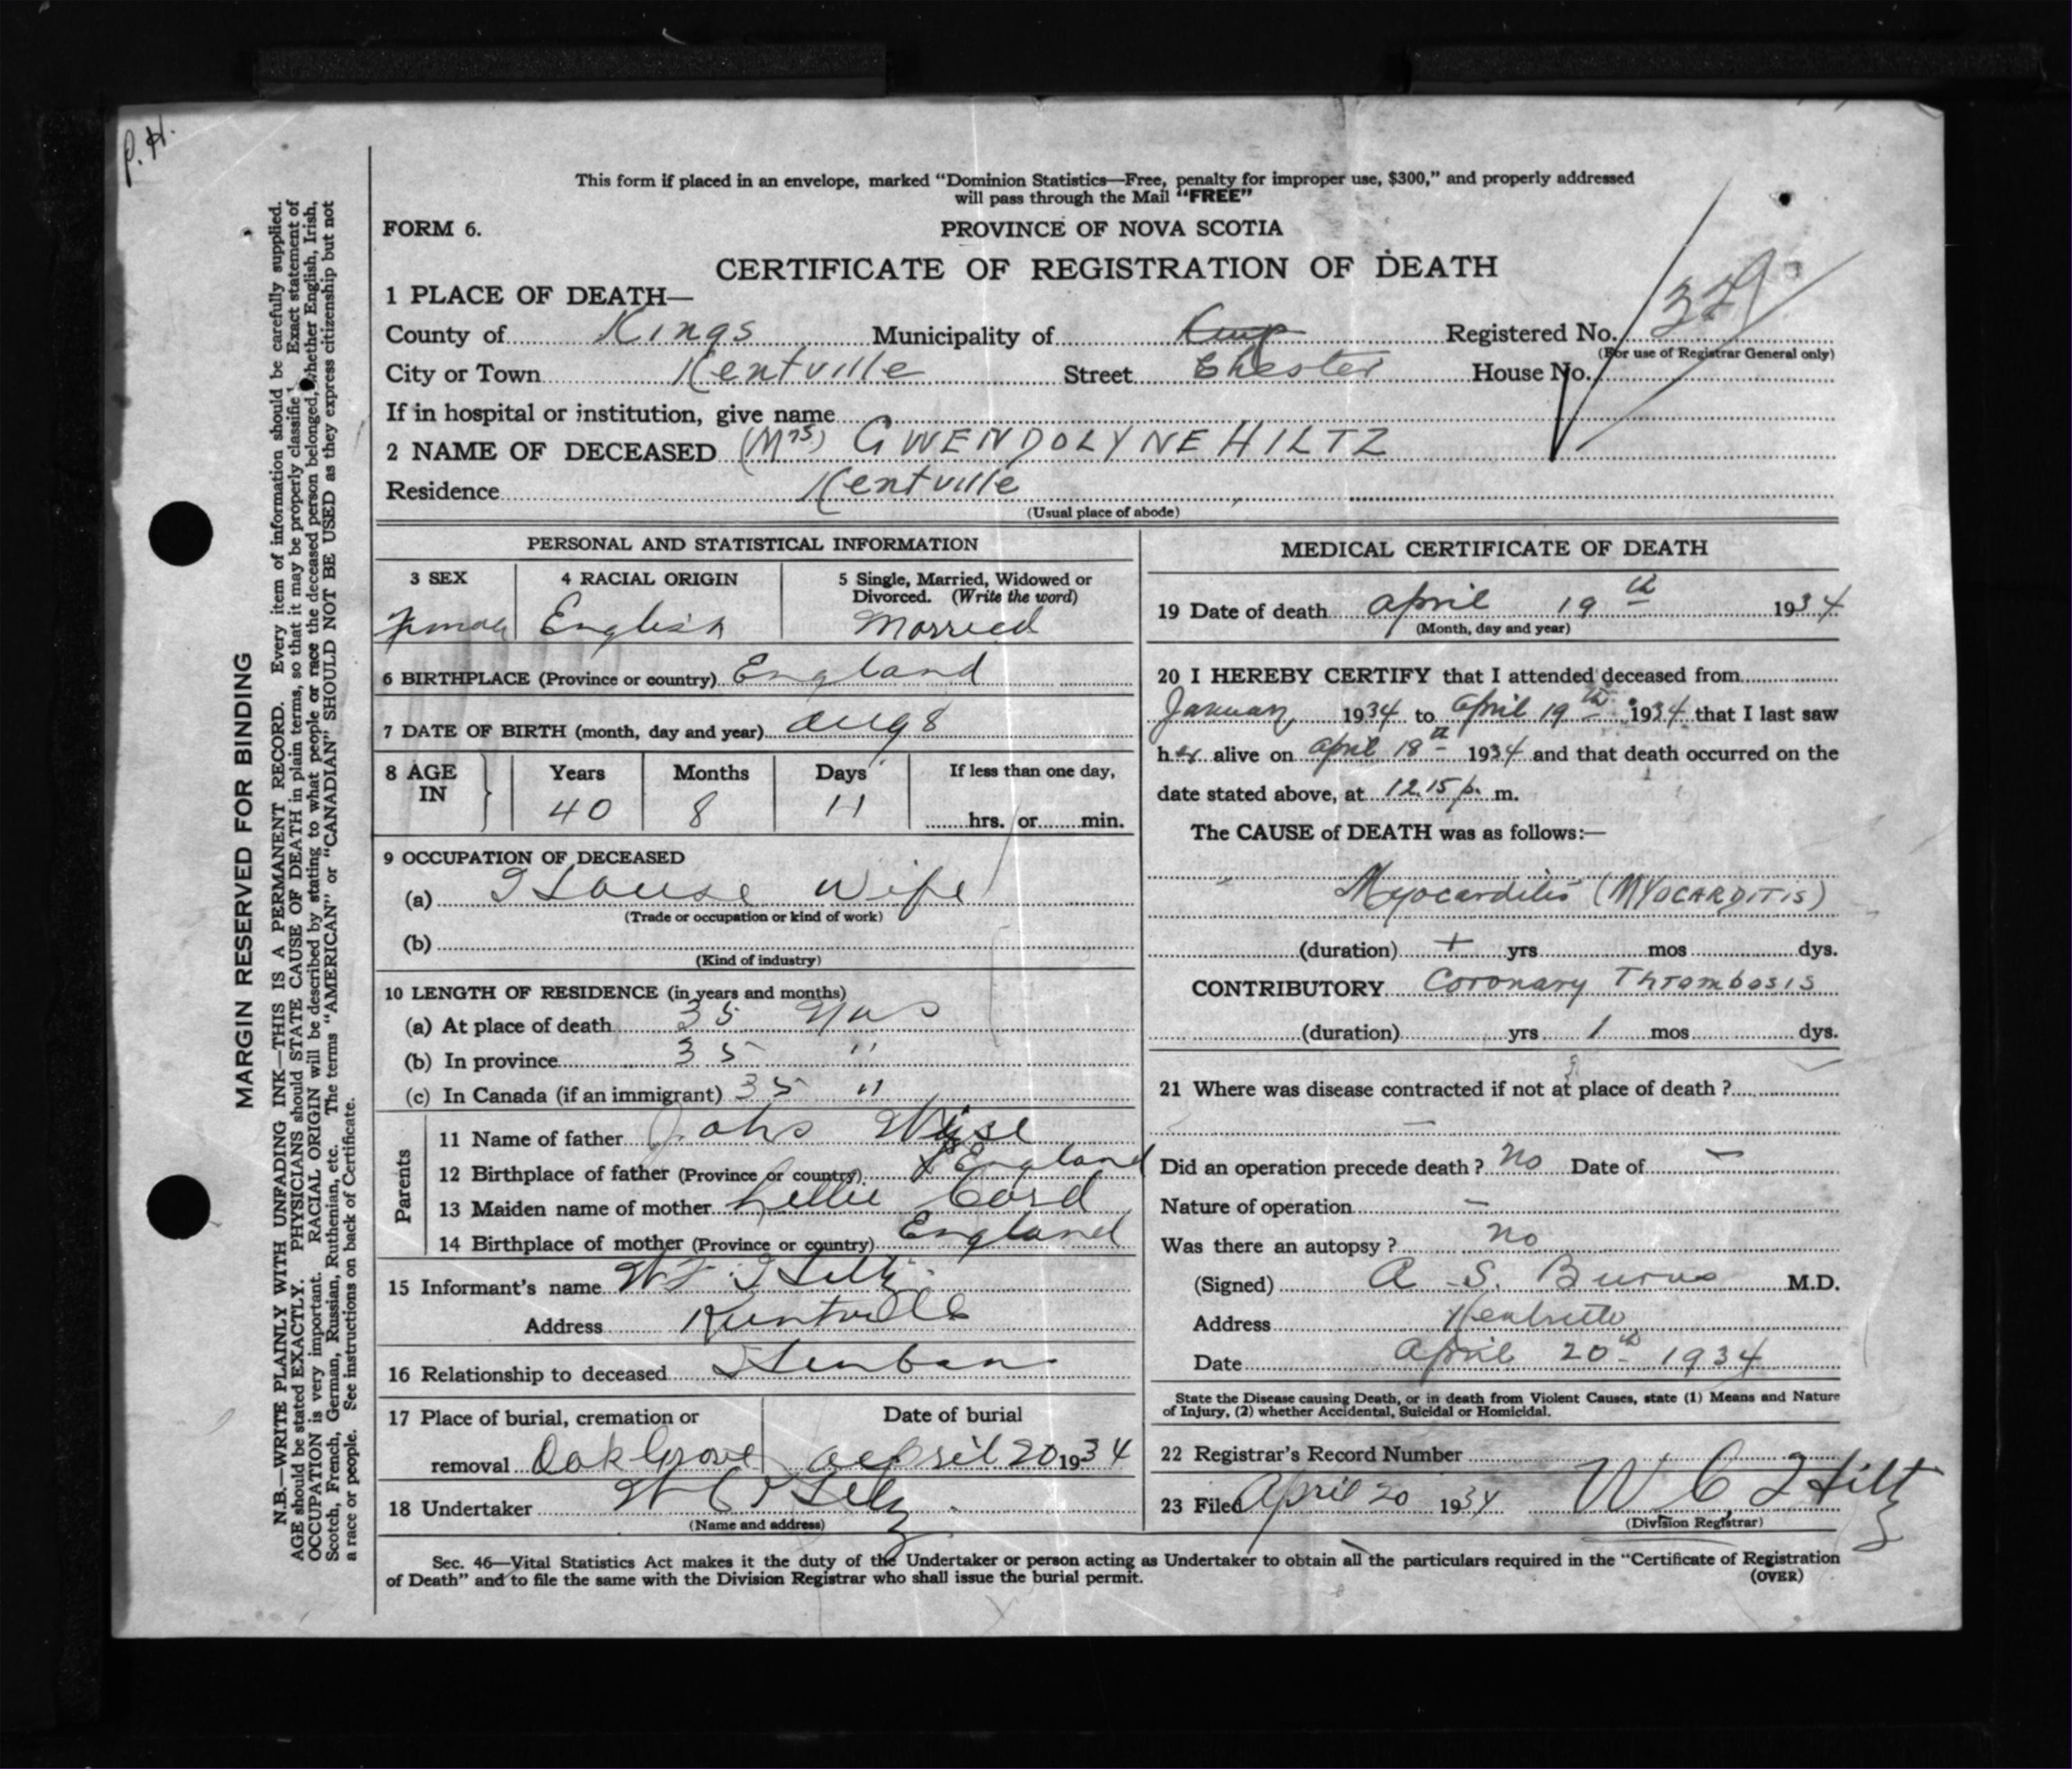 P. H.
This form if placed in an envelope, marked “Dominion Statistics—Free, penalty for improper use, $300,” and properly addressed
will pass through the Mail “FREE”
FORM 6.
PROVINCE OF NOVA SCOTIA
CERTIFICATE OF REGISTRATION OF DEATH
1 PLACE OF DEATH—
County of Kings Municipality of Registered No.
(For use of Registrar General only)
City or Town Kentville Street Chester House No.
If in hospital or institution, give name
2 NAME OF DECEASED (Mrs) GWENDOLYNE HILTZ
Residence Kentville
(Usual place of abode)
PERSONAL AND STATISTICAL INFORMATION
3 SEX 4 RACIAL ORIGIN 5 Single, Married, Widowed or
Divorced. (Write the word)
Female English Married
6 BIRTHPLACE (Province or country) England
7 DATE OF BIRTH (month, day and year) Aug 8
8 AGE IN Years Months Days If less than one day,
40 8 11 hrs. or min.
9 OCCUPATION OF DECEASED
(a) House Wife
(Trade or occupation or kind of work)
(b)
(Kind of industry)
10 LENGTH OF RESIDENCE (in years and months)
(a) At place of death 35 yrs
(b) In province 35 "
(c) In Canada (if an immigrant) 35 "
Parents
11 Name of father John Wise
12 Birthplace of father (Province or country) England
13 Maiden name of mother Lellie Cord
14 Birthplace of mother (Province or country) England
15 Informant’s name Hiltz
Address Kentville
16 Relationship to deceased
17 Place of burial, cremation or Date of burial
removal Oak Grove April 20 1934
18 Undertaker W C Hiltz
(Name and address)
MEDICAL CERTIFICATE OF DEATH
19 Date of death April 19th 1934
(Month, day and year)
20 I HEREBY CERTIFY that I attended deceased from
January 1934 to April 19th 1934 that I last saw
her alive on April 18th 1934 and that death occurred on the
date stated above, at 12.15 p. m.
The CAUSE of DEATH was as follows:—
Myocarditis (MYOCARDITIS)
(duration) + yrs mos dys.
CONTRIBUTORY Coronary Thrombosis
(duration) yrs 1 mos dys.
21 Where was disease contracted if not at place of death ?
—
Did an operation precede death ? No Date of —
Nature of operation —
Was there an autopsy ? No
(Signed) A. S. Burns M.D.
Address Kentville
Date April 20th 1934
State the Disease causing Death, or in death from Violent Causes, state (1) Means and Nature
of Injury, (2) whether Accidental, Suicidal or Homicidal.
22 Registrar’s Record Number
23 Filed April 20 1934 W C Hiltz
(Division Registrar)
Sec. 46—Vital Statistics Act makes it the duty of the Undertaker or person acting as Undertaker to obtain all the particulars required in the “Certificate of Registration
of Death” and to file the same with the Division Registrar who shall issue the burial permit.
(OVER)
MARGIN RESERVED FOR BINDING
N.B.—WRITE PLAINLY WITH UNFADING INK—THIS IS A PERMANENT RECORD. Every item of information should be carefully supplied.
AGE should be stated EXACTLY. PHYSICIANS should STATE CAUSE OF DEATH in plain terms, so that it may be properly classifie Exact statement of
OCCUPATION is very important. RACIAL ORIGIN will be described by stating to what people or race the deceased person belonged, whether English, Irish,
Scotch, French, German, Russian, Ruthenian, etc. The terms “AMERICAN” or “CANADIAN” SHOULD NOT BE USED as they express citizenship but not
a race or people. See instructions on back of Certificate.